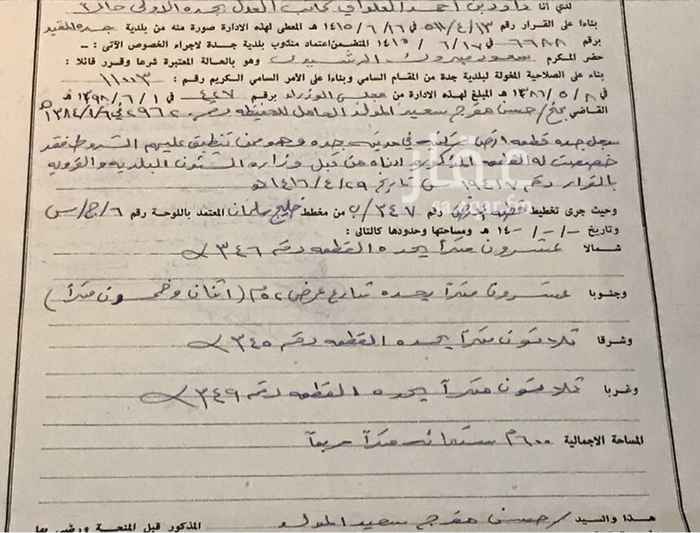 لدي أنا داود بن أحمد العلواني كاتب العدل بجده الاولى حالا
بناءا على القرار رقم ٥١١/٤/١٣ في ١٤١٥/٦/١٦ المعطى لهذه الادارة صورة منه من بلدية جده المقيد
برقم ٦٦٨٨ في ١٤١٥/٦/١٧ المتضمن اعتماد مندوب بلدية جدة لاجراء الخصوص الآتى : ــ
حضر المكرم سعود مبروك الرشيدي وهو بالحالة المعتبرة شرعا وقرر قائلا :
بناء على الصلاحية المخولة لبلدية جدة من المقام السامي وبناءا على الامر السامي الكريم رقم : ١١٠١٣
في ١٣٨٦/٥/٨ هـ المبلغ لهذه الادارة من مجلس الوزراء برقم ٤٢٧ في ١٣٩٨/٦/١ هـ
القاضي بمنح / حسن مفرح سعيد المولد الحامل للحفيظه رقم ٢٩٦٢ في ١٣٨٤/١/٦هـ
سجل جده قطعه ارض سكنيه في مدينه جده وهو ممن تنطبق عليهم الشروط فقد
خصصت له القطعه المذكوره ادناه من قبل وزاره الشئون البلديه والقرويه
بالقرار رقم ١٩٤١٧ س تاريخ ١٤١٦/٤/٢٩هـ
وحيث جرى تخطيط قطعه الارض رقم ٣٤٧/ب من مخطط خليج سلمان المعتمد باللوحة رقم ٦/ج/س
وتاريخ -/-/-١٤ هـ ومساحتها وحدودها كالتالى :
شمالا عشرون متراً يحده القطعه رقم ٣٤٦
وجنوبا عشرون متراً يحده شارع عرض ٥٢م (اثنان وخمسون متراً)
وشرقا ثلاثون متراً يحده القطعه رقم ٣٤٥
وغربا ثلاثون متراً يحده القطعه رقم ٣٤٩
المساحة الاجمالية ٦٠٠م ستمائه متراً مربعاً
هذا والسيد / حسن مفرح سعيد المولد المذكور قبل المنحة ورضي بها